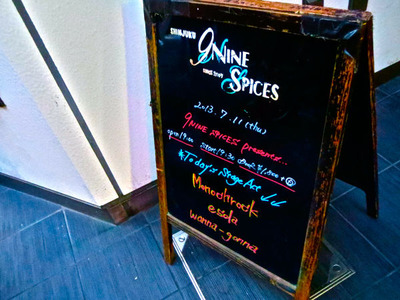 SHINJUKU
9NINE
SPICES
2013.7.11(thu)
9NINE SPICES presents...
open 19:00 start 19:30
Today's Stage Act ↓↓
Monochrock
essela
wanna-gonna